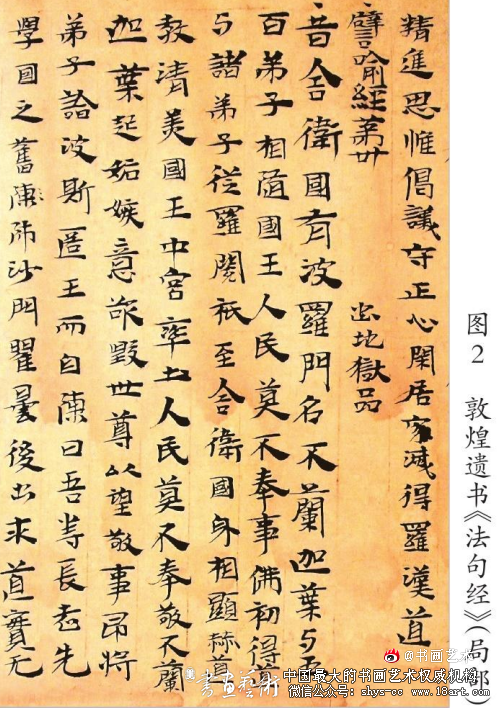 精進思惟倡議守正心閑居寂滅得羅漢道
譬喻經第卅 地獄品
昔舍衛國有波羅門名不蘭迦葉与五
百弟子相隨國王人民莫不奉事佛初得道
与諸弟子從羅閱祇至舍衛國身相顯赫道
教清美國王中宮率土人民莫不奉敬不蘭
迦葉起妬嫉意欲毀世尊以望敬事昂將
弟子詣波斯匿王而自陳曰吾等長老先
學國之舊陳師沙門瞿曇後出求道實无
图2 敦煌遗书《法句经》(局部)
@书画艺术
書畫藝術
中国最大的书画艺术权威视频
微信公众号: shys-cc www.18art.com